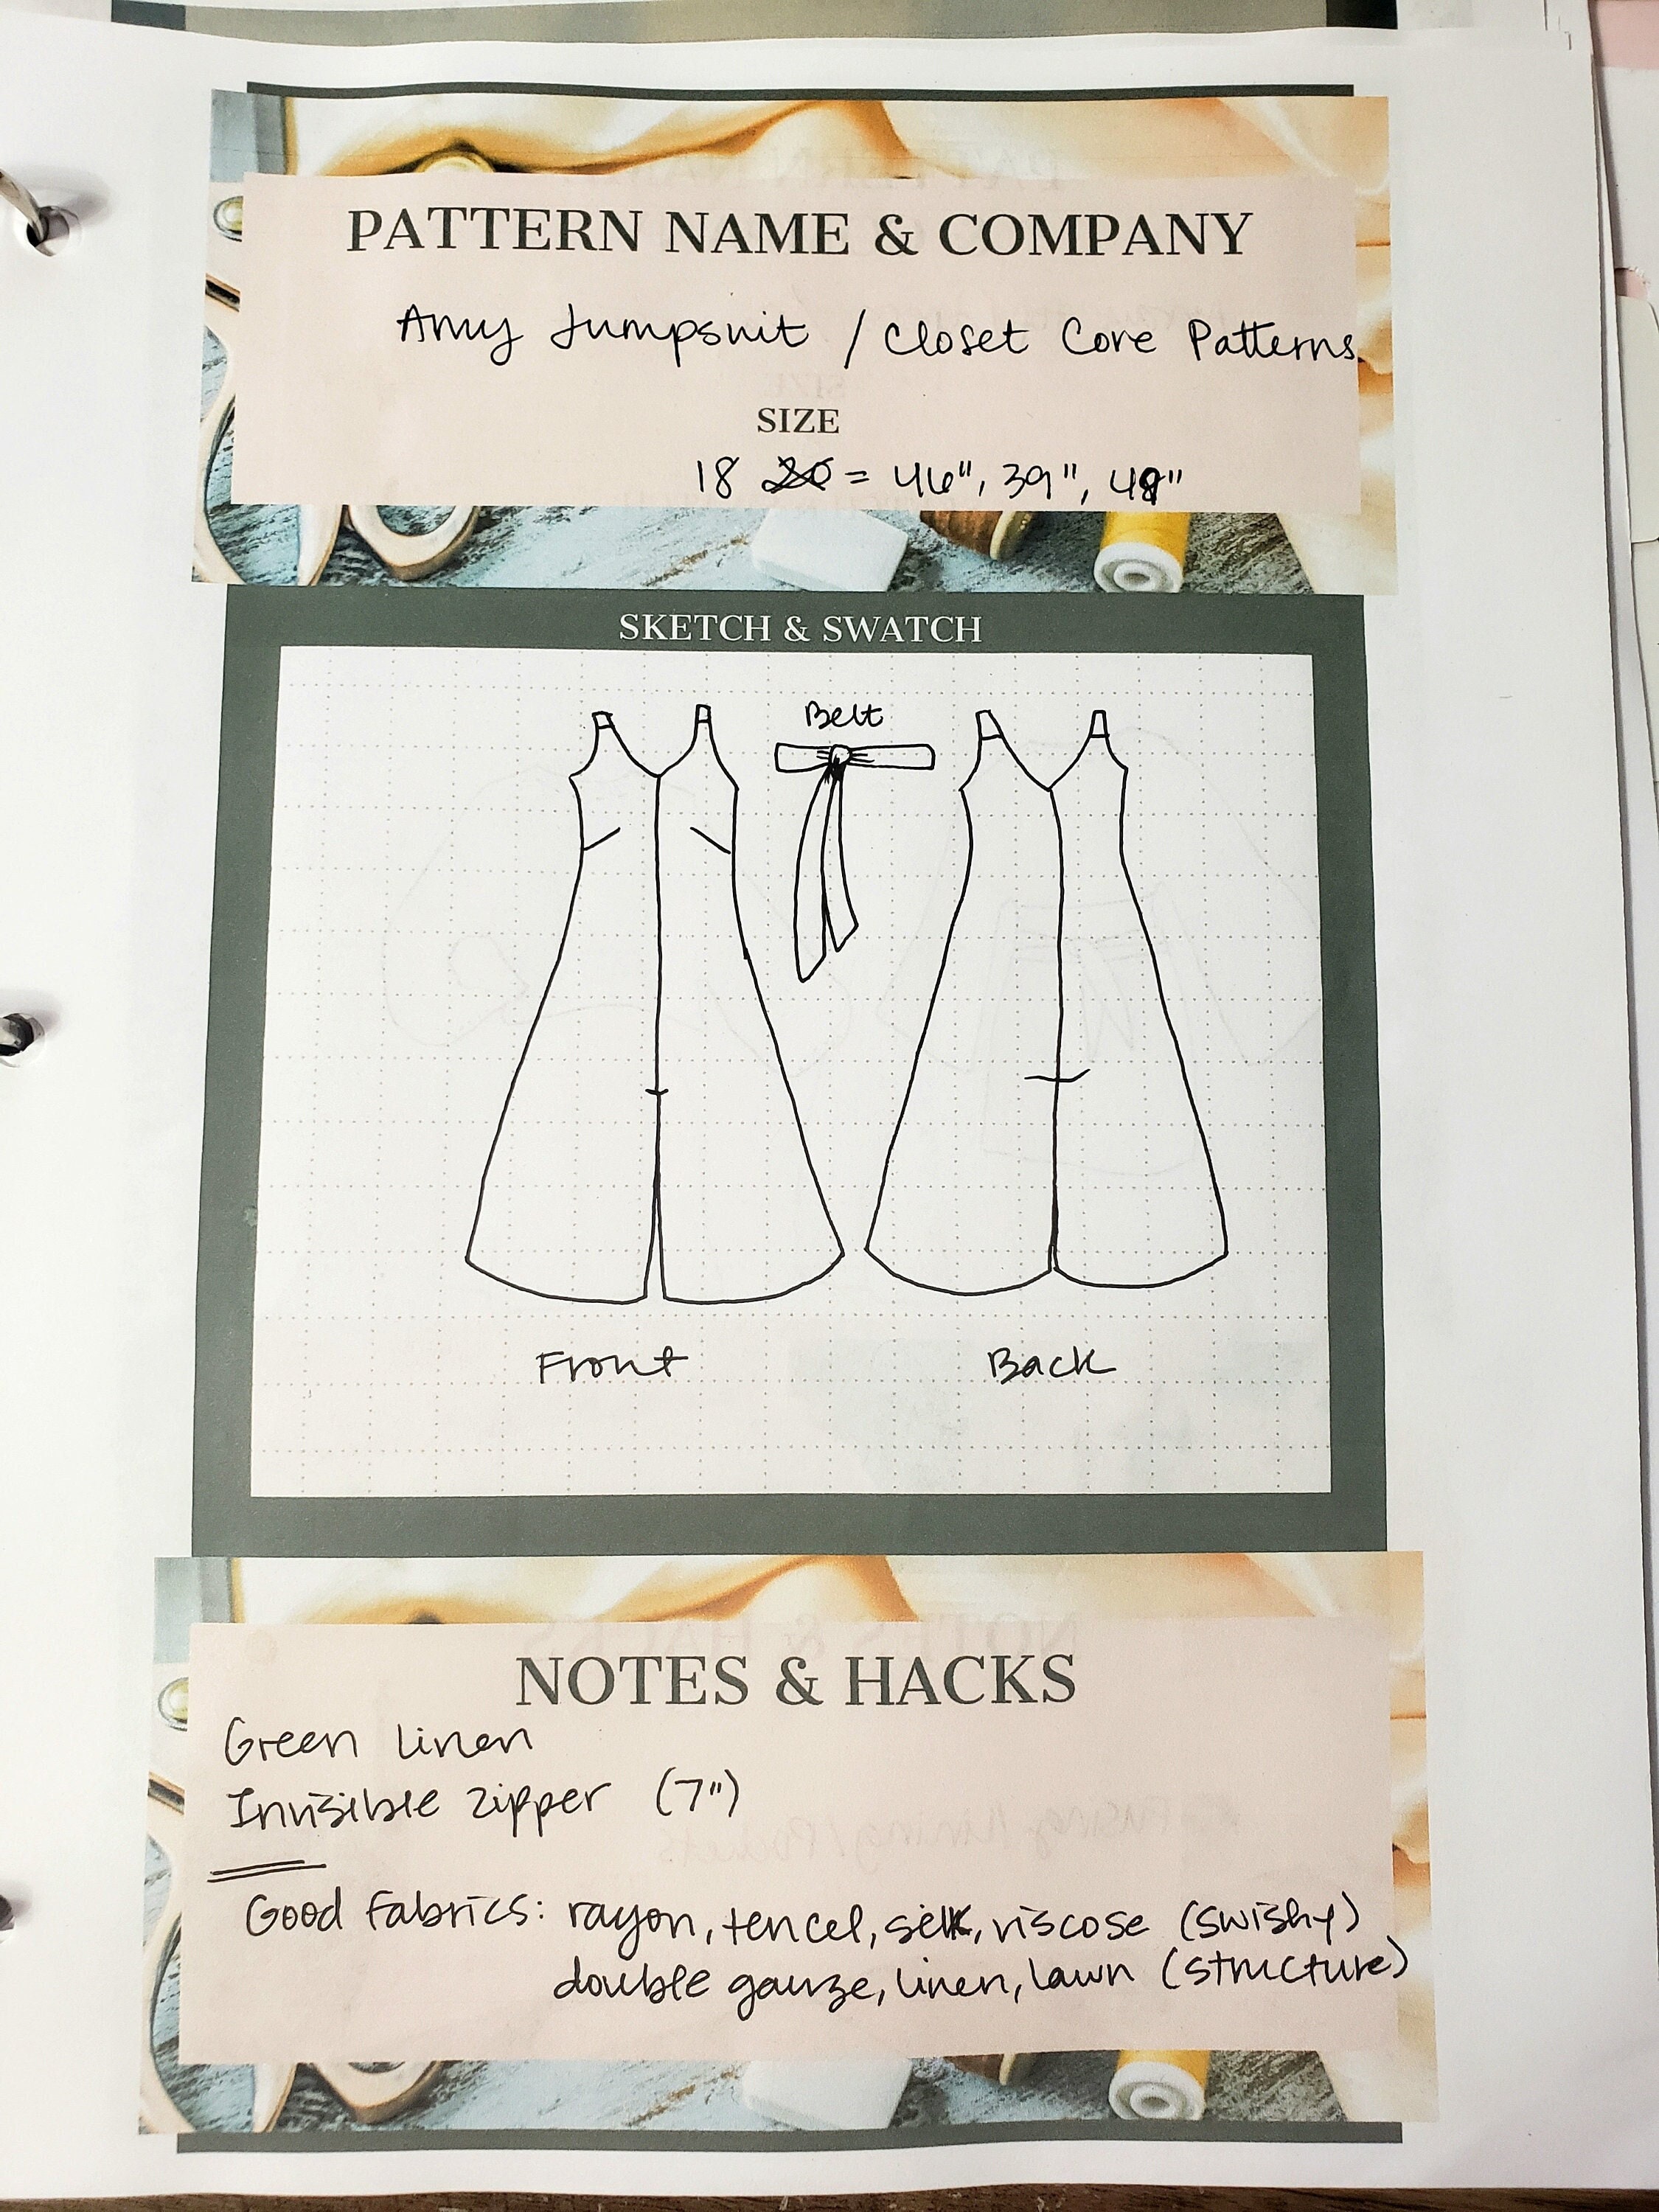 PATTERN NAME & COMPANY
Amy Jumpsuit / Closet Core Patterns
SIZE
18 20 = 46", 39", 48"
SKETCH & SWATCH
Belt
Front
Back
NOTES & HACKS
Green linen
Invisible zipper (7")
Good fabrics: rayon, tencel, silk, viscose (swishy)
double gauze, linen, lawn (structure)